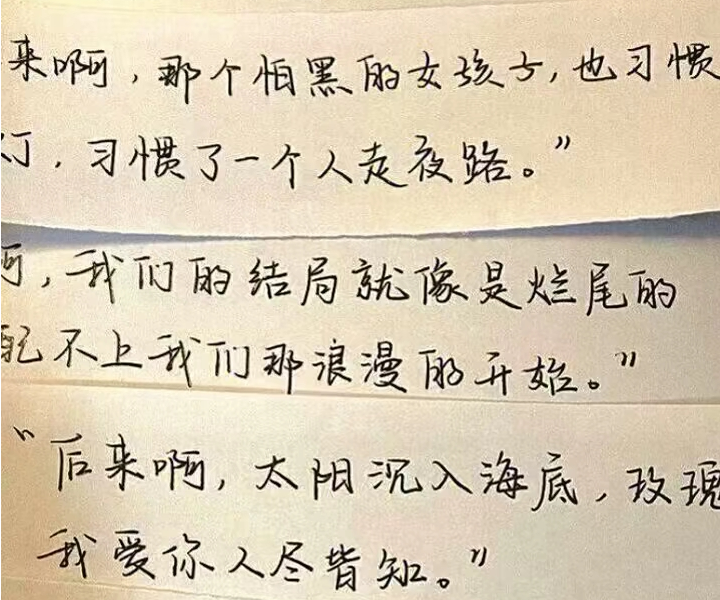 来啊，那个怕黑的女孩子，也习惯
灯，习惯了一个人走夜路。”
啊，我们的结局就像是烂尾的
配不上我们那浪漫的开始。”
“后来啊，太阳沉入海底，玫瑰
我爱你人尽皆知。”